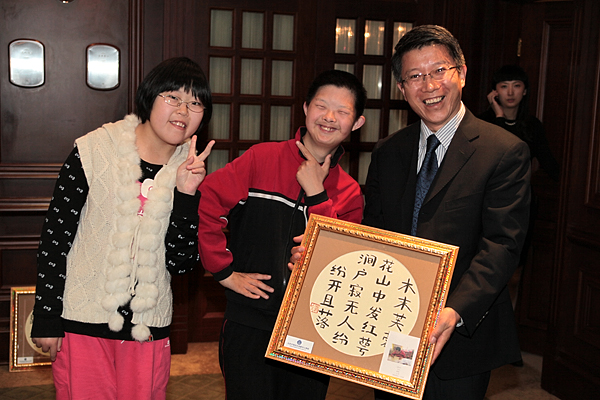 木末芙蓉
花山中发红萼
涧户寂无人纷
纷开且落